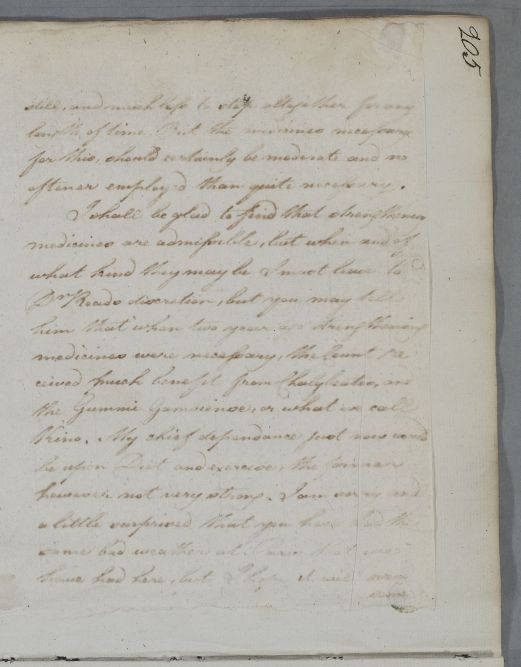 205
still, and much less to stop altogether for any
length of time. But the medicines necessary
for this, should certainly be moderate and no
oftener employed than quite necessary.
I shall be glad to find that strengthening
medicines are admissible, but when and of
what kind they may be I must leave to
Dr Reads discretion, but you may tell
him that when two years ago strengthening
medicines were necessary, the Count re
ceived much benefit from Chalybeates, and
the Gummi Gambiense, or what we call
Kino. My chief dependance just now would
be upon Diet and exercise, the former
however not very strong. I am sorry and
a little surprised that you have had the
same bad weather at that we
have had here, but I hope it will